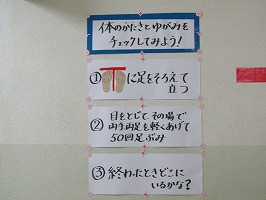 体のかたさとゆがみを
チェックしてみよう!
① に足をそろえて
立つ
② 目をとじて その場で
両手両足を軽くあげて
50回足ぶみ
③ 終わったときどこに
いるかな?